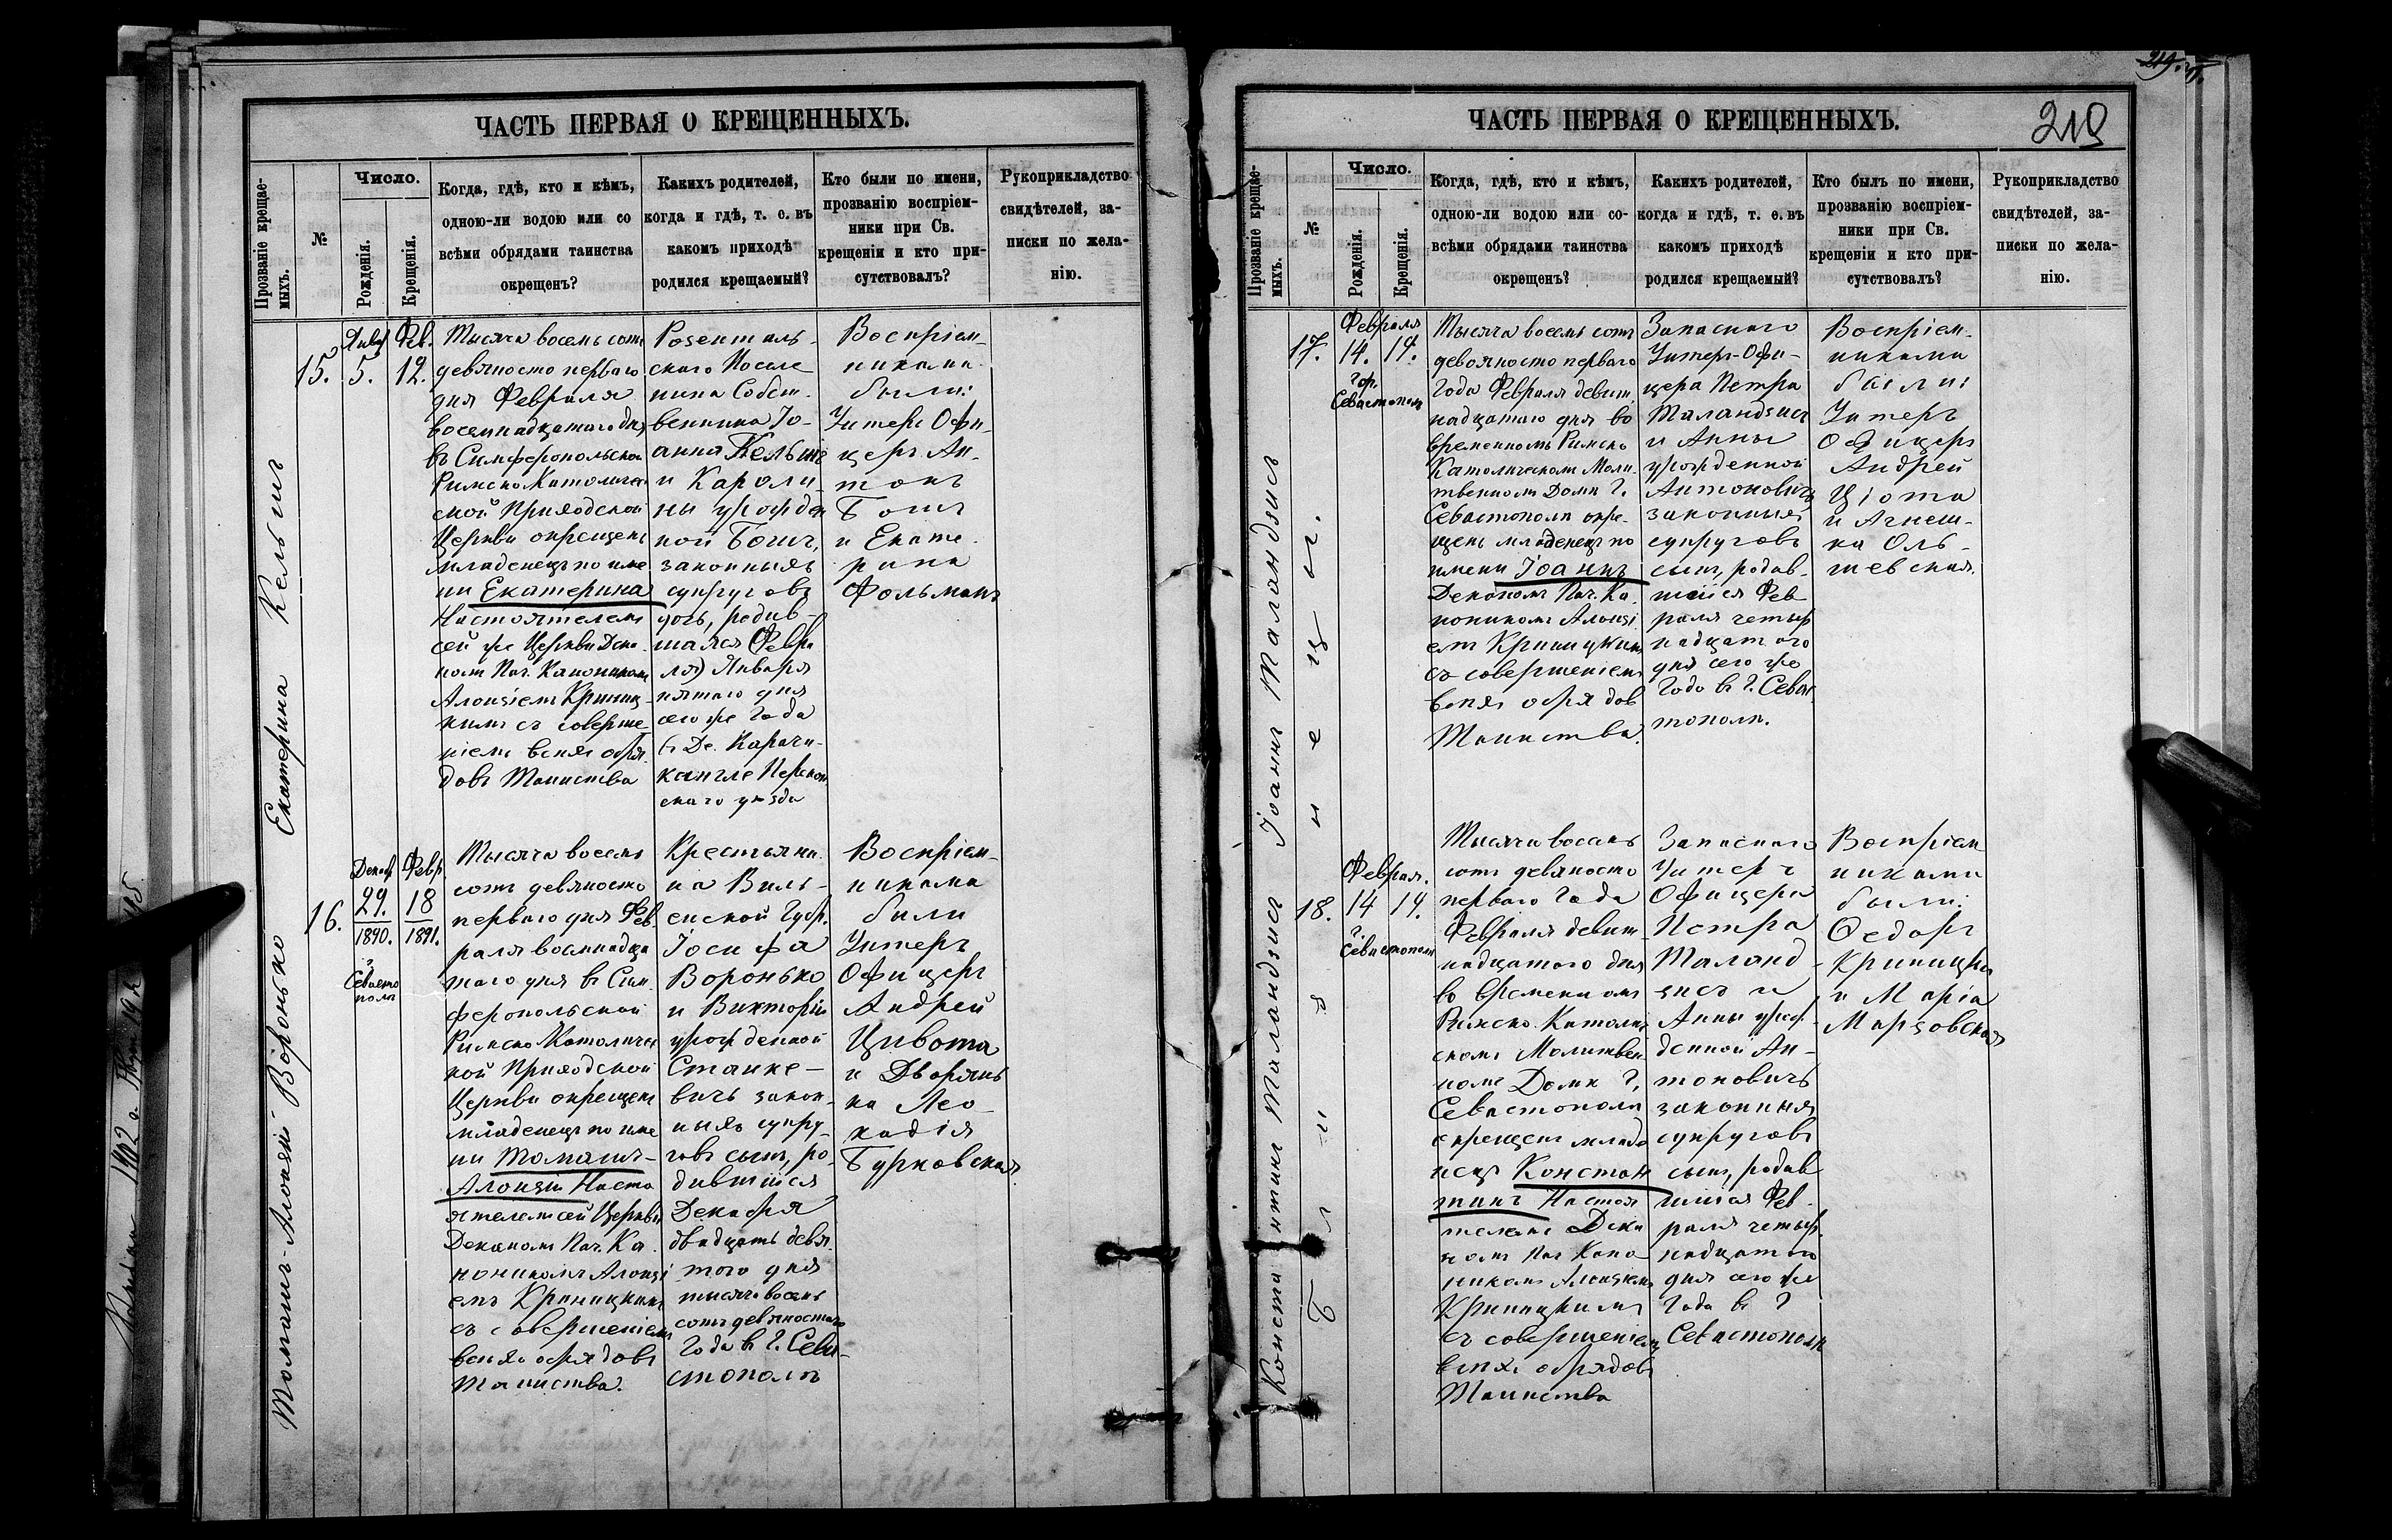 ЧАСТЬ ПЕРВАЯ О КРЕЩЕННЫХЪ.
Прозваніе крещае-
мыхъ.
№
Число.
Рожденія.
Крещенія.
Когда, гдѣ, кто и кѣмъ,
одною-ли водою или со
всѣми обрядами таинства
окрещенъ?
Какихъ родителей,
когда и гдѣ, т. е. въ
какомъ приходѣ
родился крещаемый?
Кто были по имени,
прозванію воспріем-
ники при Св.
крещеніи и кто при-
сутствовалъ?
Рукоприкладство
свидѣтелей, за-
писки по жела-
нію.
Екатерина Кельшъ
15.
Янв. Фев.
5. 12.
Тысяча восемь сотъ
девяносто перваго
дня Февраля
восемнадцатаго дня
въ Симферопольской
Римско Католичес
кой Приходской
Церкви окрещенъ
младенецъ по име
ни Екатерина
Настоятелемъ
сей же Церкви Дека
номъ Поч. Каноникомъ
Алоизіемъ Криниц
кимъ съ соверше
ніемъ всѣхъ обря
довъ Таинства
Розенталь-
скаго Поселе
нина Собст-
венника Іо-
анна Кельшъ
и Кароли
ны урожден
ной Бошъ,
законныхъ
супруговъ
дочь, родив-
шаяся (Февра
ля) Января
пятаго дня
сего же Года
въ Де. Карачи-
кангле Перекоп
скаго уѣзда
Воспріем-
никами
были:
Унтеръ Офи-
церъ Ан-
тонъ
Бошъ
и Екате-
рина
Фольманъ
Томашъ-Алоизій Воронько
16.
Декаб. Февр.
29. 18
1890. 1891.
г.
Севасто
поль
Тысяча восемь
сотъ девяносто
перваго дня Фев
раля восмнадца
таго дня въ Сим
феропольской
Римско Католичес
кой Приходской
Церкви окрещенъ
младенецъ по име
ни Томашъ-
Алоизій Насто
ятелемъ сей Церкви
Деканомъ Поч. Ка
ноникомъ Алоизі
емъ Криницкимъ
съ совершеніемъ
всѣхъ обрядовъ
Таинства.
Крестьяни
на Виль-
енской Губр.
Іосифа
Воронько
и Викторіи
урожденной
Станке-
вичъ закон-
ныхъ супру-
говъ сынъ, ро-
дившійся
Декабря
двадцать девя
таго дня
тысяча восемь
сотъ девяностаго
Года въ г. Сева-
стополѣ
Воспріем-
никами
были
Унтеръ
Офицеръ
Андрей
Цивота
и Дворянь
ка Лео
кадія
Бурковская
ЧАСТЬ ПЕРВАЯ О КРЕЩЕННЫХЪ.
219
Прозваніе крещае-
мыхъ.
№
Число.
Рожденія.
Крещенія.
Когда, гдѣ, кто и кѣмъ,
одною-ли водою или со-
всѣми обрядами таинства
окрещенъ?
Какихъ родителей,
когда и гдѣ, т. е. въ
какомъ приходѣ
родился крещаемый?
Кто былъ по имени,
прозванію воспріем-
ники при Св.
крещеніи и кто при-
сутствовалъ?
Рукоприкладство
свидѣтелей, за-
писки по жела-
нію.
Іоаннъ Таландзисъ
17.
Февраля
14. 19.
Гор.
Севастополь
Тысяча восемь сотъ
девяносто перваго
Года Февраля девят
надцатаго дня во
временномъ Римско
Католическомъ Моли
твенномъ Домѣ г.
Севастополя окре-
щенъ младенецъ по
имени Іоаннъ
Деканомъ Поч. Ка
ноникомъ Алоизі
емъ Криницкимъ
съ совершеніемъ
всѣхъ обрядовъ
Таинства.
Запаснаго
Унтеръ-Офи-
цера Петра
Таландзисъ
и Анны
урожденной
Антоновичъ
законныхъ
супруговъ
сынъ, родив-
шійся Фев
раля четыр
надцатаго
дня сего же
Года въ г. Севас
тополѣ.
Воспріем-
никами
были:
Унтеръ
Офицеръ
Андрей
Ціота
и Агнеш-
ка Оль-
шевская.
Константинъ Таландзисъ
Близнецы.
18.
Февраля.
14 19.
г.
Севастополь
Тысяча восемь
сотъ девяносто
перваго Года
Февраля девят
надцатаго дня
во временномъ
Римско Католиче
скомъ Молитвен
номъ Домѣ г.
Севастополя
окрещенъ младе
нецъ Констан
тинъ Настоя
телемъ Дека
номъ Поч Кано
никомъ Алоизіемъ
Криницкимъ
съ совершеніемъ
всѣхъ обрядовъ
Таинства
Запаснаго
Унтеръ
Офицера
Петра
Таланд-
зисъ и
Анны урож
денной Ан-
тоновичъ
законныхъ
супруговъ
сынъ, родив
шійся Фев
раля четыр
надцатаго
дня сего же
Года въ г
Севастополѣ
Воспріем
никами
были:
Ѳедоръ
Криницкій
и Марія
Марзовская